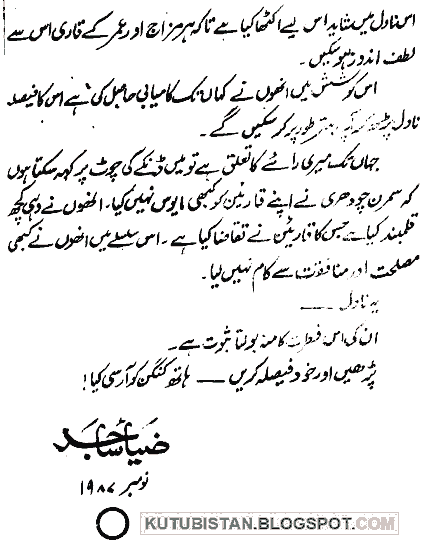 اس ناول میں شاید اس لیے اکٹھا کیا ہے تاکہ ہر مزاج اور عمر کے قاری اس سے
لطف اندوز ہو سکیں۔
اس کوشش میں انھوں نے کہاں تک کامیابی حاصل کی ہے اس کا فیصد
ناول پڑھ کر آپ بہتر طور پر کر سکیں گے۔
جہاں تک میری رائے کا تعلق ہے تو میں ڈنکے کی چوٹ پر کہہ سکتا ہوں
کہ سمرن چودھری نے اپنے قارئین کو کبھی مایوس نہیں کیا۔ انھوں نے وہی کچھ
قلمبند کیا ہے جس کا قارئین نے تقاضا کیا ہے۔ اس سلسلے میں انھوں نے کبھی
مصلحت اور منافقت سے کام نہیں لیا۔
یہ ناول ——
ان کی اس فطرت کا منہ بولتا ثبوت ہے۔
پڑھیں اور خود فیصلہ کریں —— ہاتھ کنگن کو آرسی کیا!
ضیاء ساجد
نومبر ۱۹۸۷
KUTUBISTAN.BLOGSPOT.COM